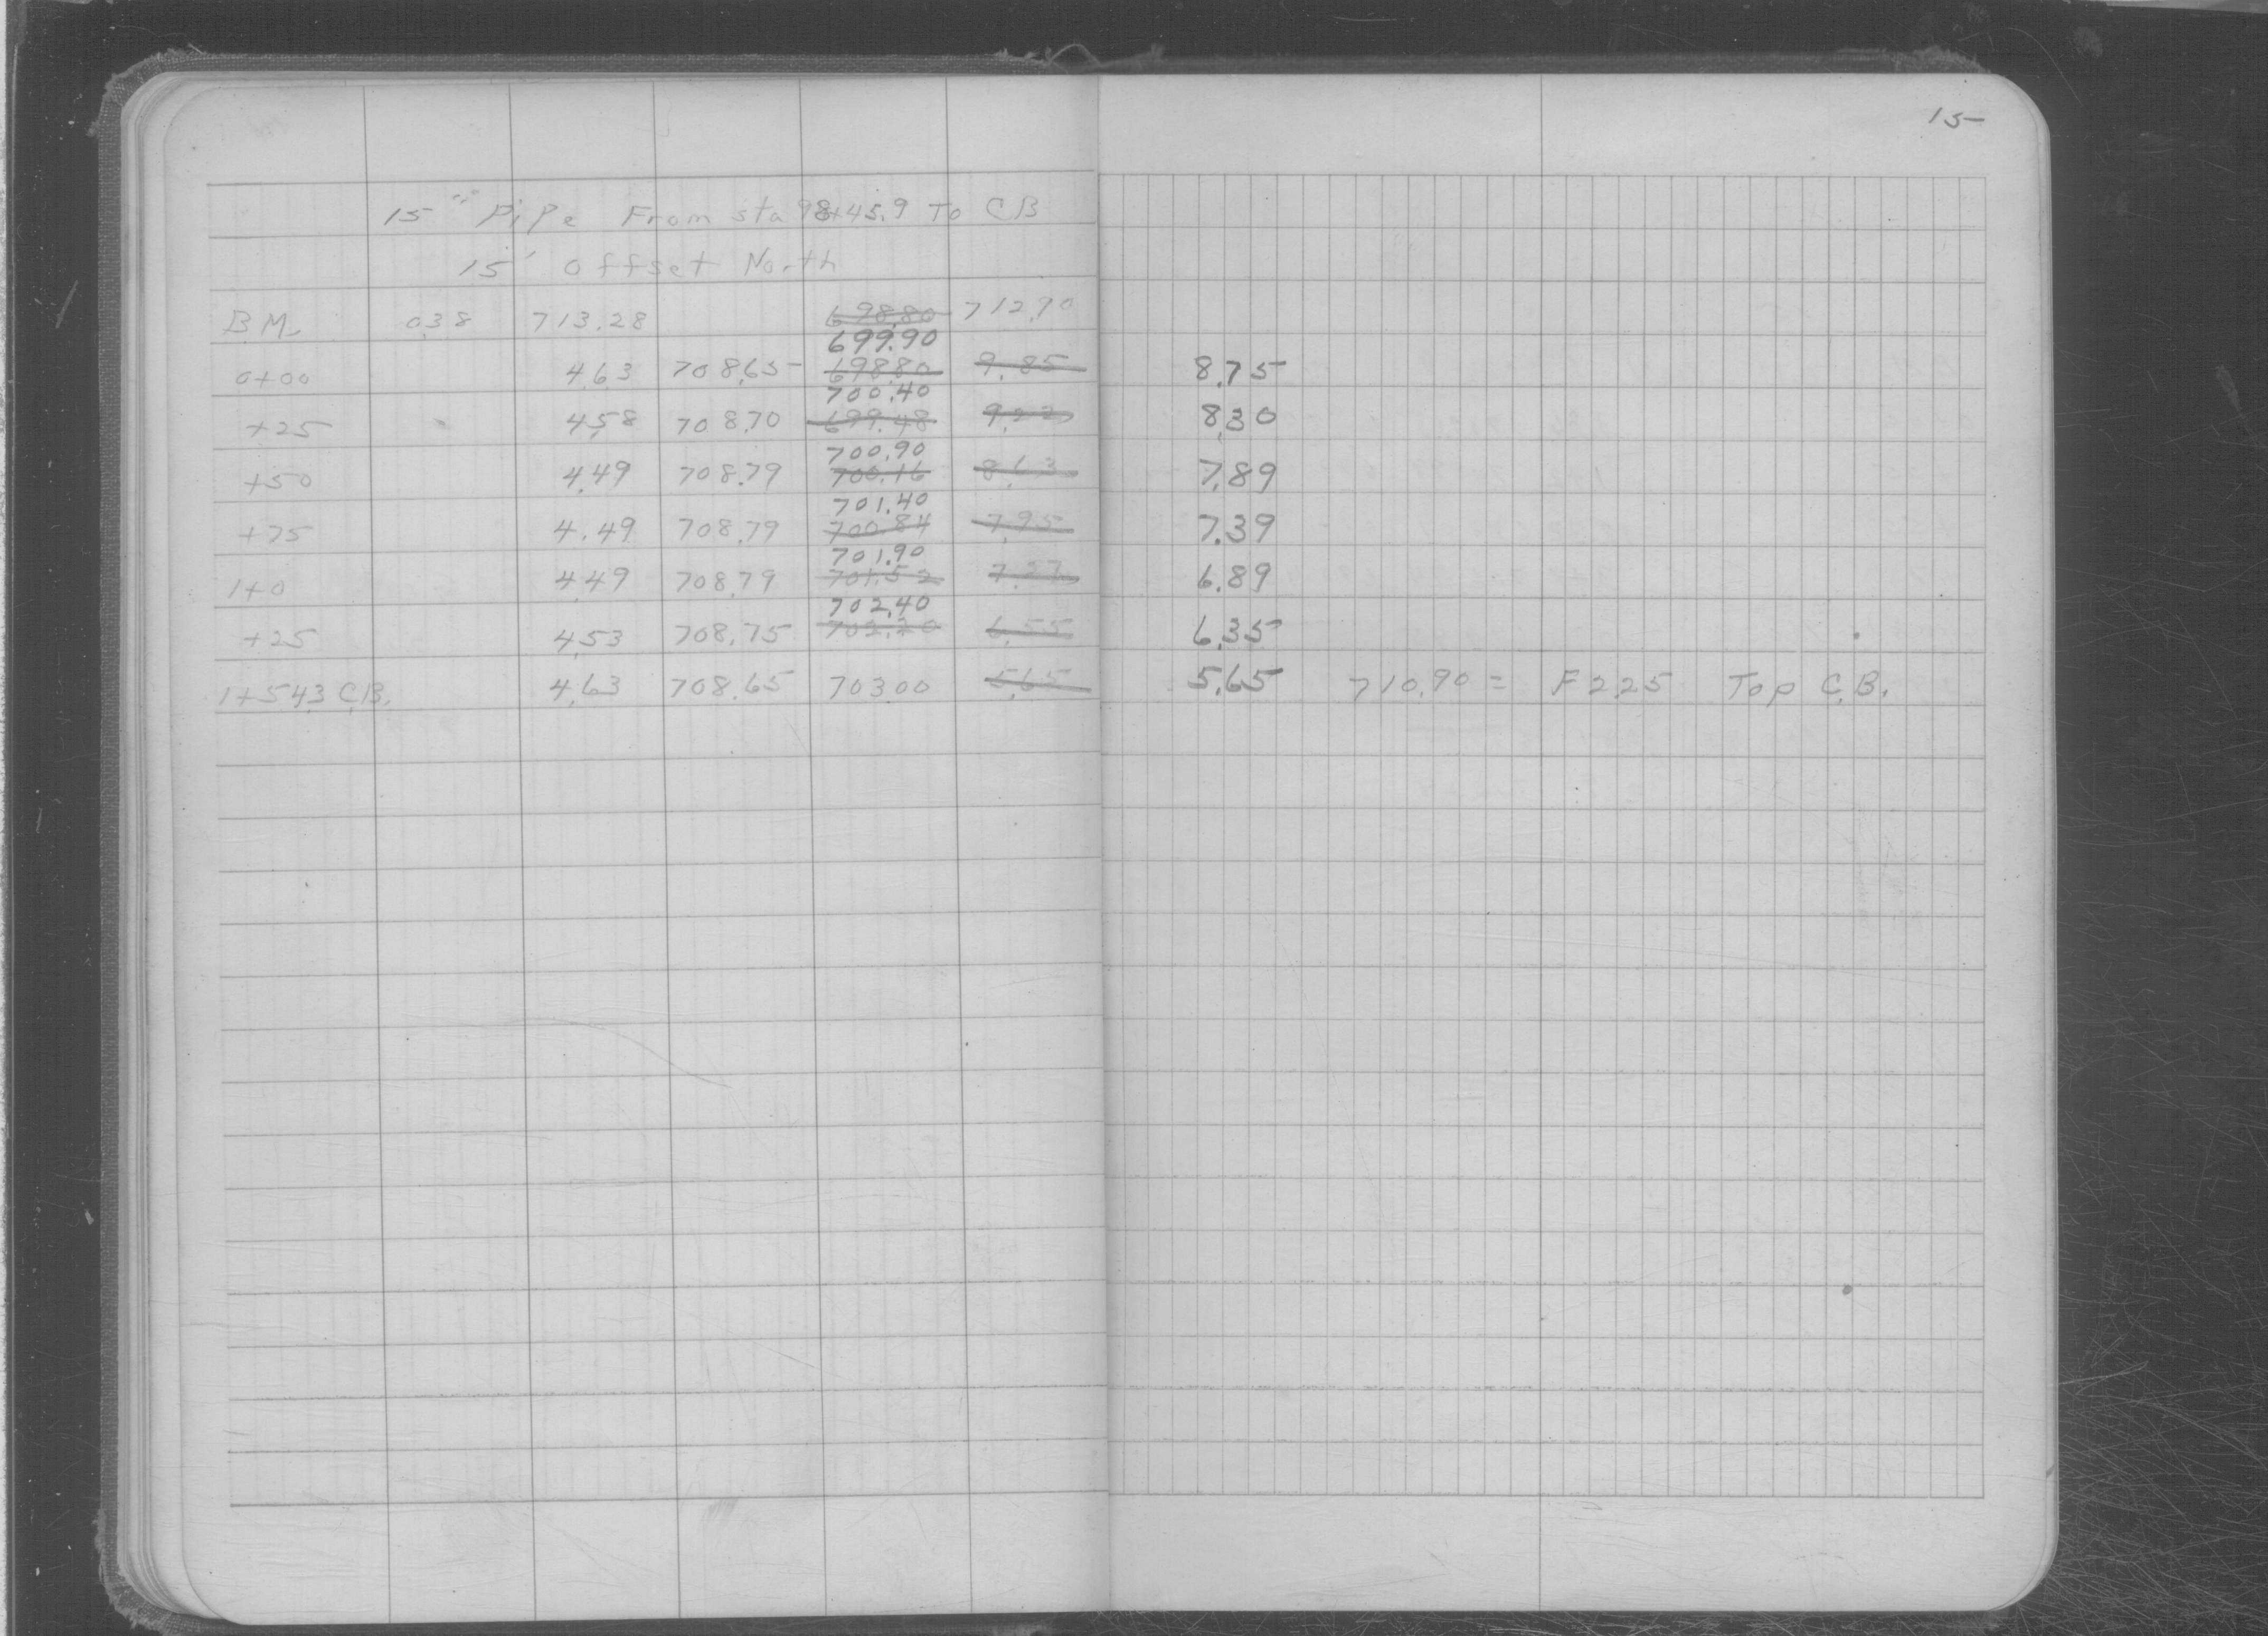 15
15" Pipe From sta 98+45.9 To CB
15' offset North
B.M. 0.38 713.28 698.80 712.90
699.90
0+00 4.63 708.65 698.80 9.85 8.75
700.40
+25 4.58 708.70 699.48 9.22 8.30
700.90
+50 4.49 708.79 700.16 8.63 7.89
701.40
+75 4.49 708.79 700.84 7.95 7.39
701.90
1+0 4.49 708.79 701.52 7.27 6.89
702.40
+25 4.53 708.75 702.20 6.55 6.35
1+54.3 C.B. 4.63 708.65 703.00 5.65 5.65 710.90 = F 2.25 Top C.B.